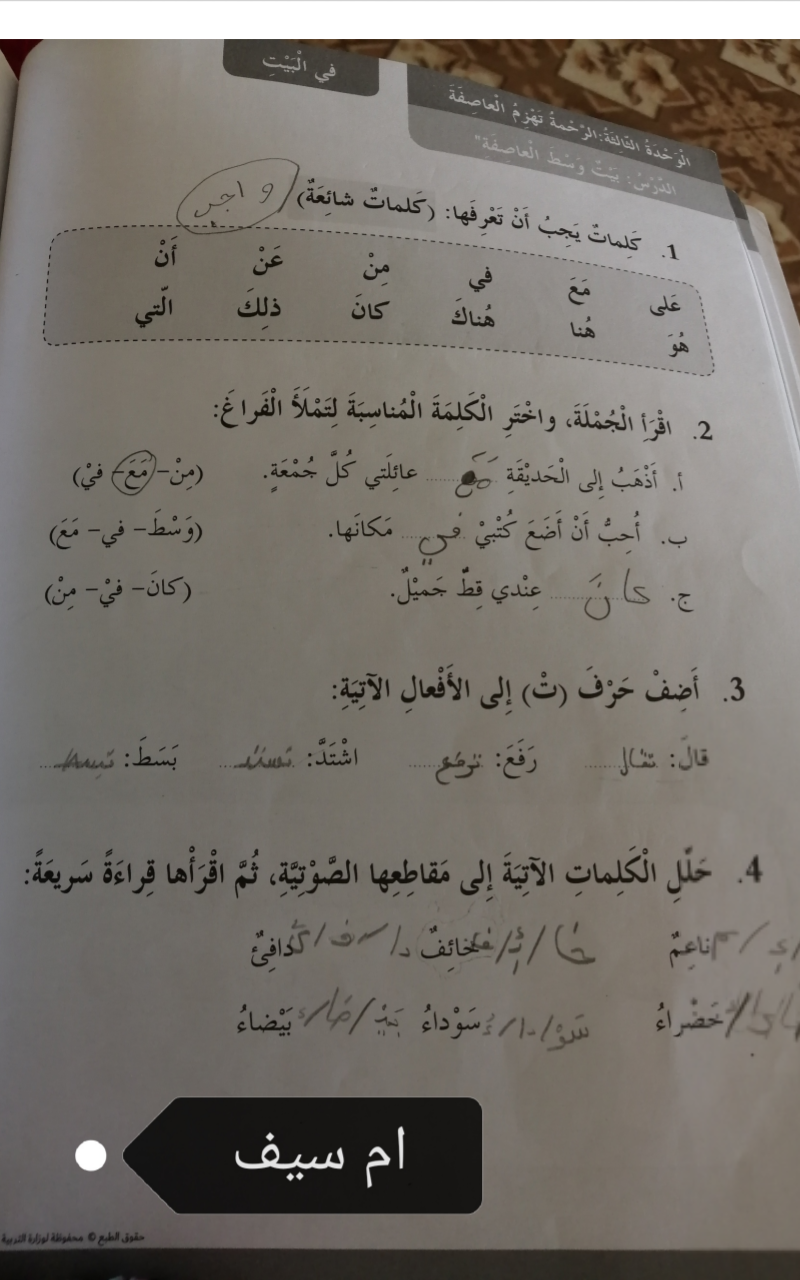 في الْبَيْتِ
الْوَحْدَةُ الثّالِثَةُ: الرَّحْمةُ تَهْزِمُ الْعاصِفَةَ
الدَّرْسُ: بَيْتٌ وَسْطَ الْعاصِفَةِ"
1. كَلِماتٌ يَجِبُ أَنْ تَعْرِفَها: (كَلماتٌ شائِعَةٌ)
عَلى مَعَ في مِنْ عَنْ أَنْ
هُوَ هُنا هُناكَ كانَ ذلِكَ الّتي
2. اقْرَأِ الْجُمْلَةَ، واخْتَرِ الْكَلِمَةَ الْمُناسِبَةَ لِتَمْلَأَ الْفَراغَ:
أ. أَذْهَبُ إِلى الْحَديْقَةِ مع عائِلَتي كُلَّ جُمْعَةٍ. (مِنْ- مَعَ- فيْ)
ب. أُحِبُّ أَنْ أَضَعَ كُتْبيْ في مَكانَها. (وَسْطَ- في- مَعَ)
ج. كانَ عِنْدي قِطٌّ جَميْلٌ. (كانَ- فيْ- مِنْ)
3. أَضِفْ حَرْفَ (تْ) إِلى الأَفْعالِ الآتِيَةِ:
قالَ: تقال رَفَعَ: ترفع اشْتَدَّ: تشتد بَسَطَ: تبسط
4. حَلِّلِ الْكَلِماتِ الآتِيَةَ إِلى مَقاطِعِها الصَّوْتِيَّةِ، ثُمَّ اقْرَأْها قِراءَةً سَريعَةً:
ناعِمٌ خا/ئِ/فٌ خائِفٌ دافِئٌ
خَضْراءُ سَوْ/دا/ءُ سَوْداءُ بَيْ/ضا/ءُ بَيْضاءُ
ام سيف
حقوق الطبع © محفوظة لوزارة التربية